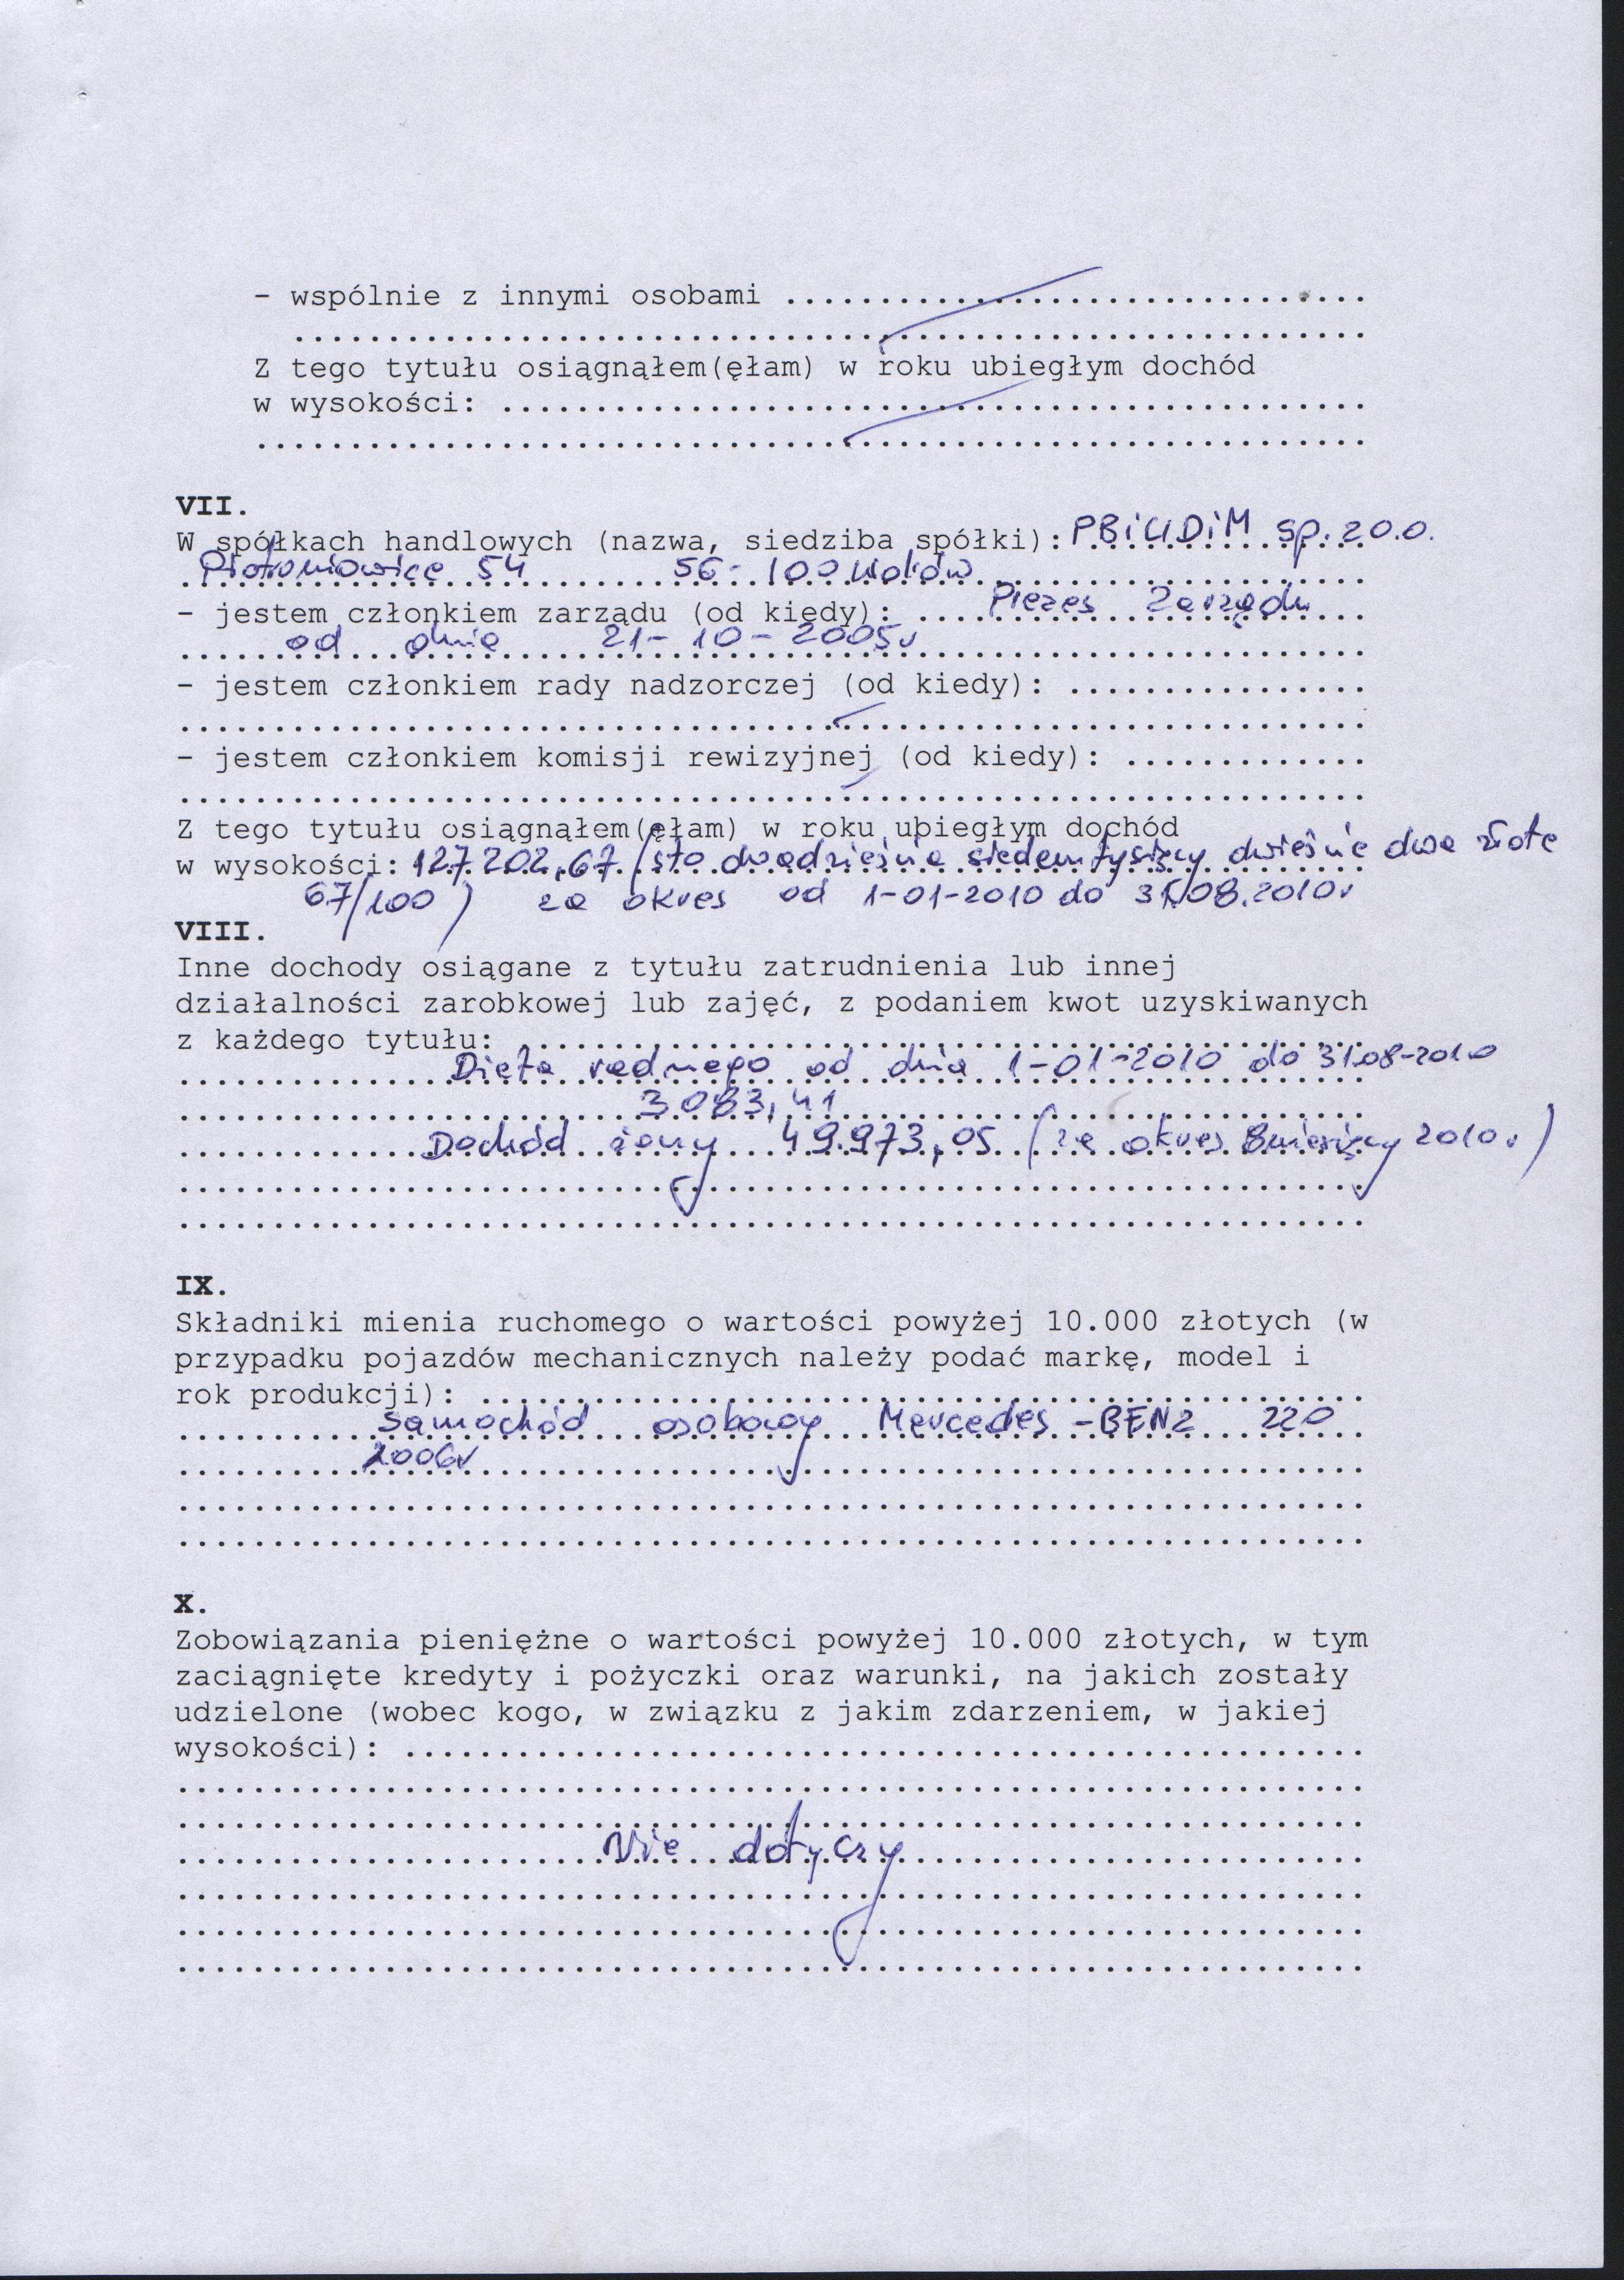 - wspólnie z innymi osobami ...............................
.........................................................
Z tego tytułu osiągnąłem(ęłam) w roku ubiegłym dochód
w wysokości: ..............................................
...........................................................
VII.
W spółkach handlowych (nazwa, siedziba spółki): PBiUDiM sp. z o.o.
Piotroniowice 54 56-100 Wołów
- jestem członkiem zarządu (od kiedy): Prezes Zarządu
od dnia 21-10-2005r
- jestem członkiem rady nadzorczej (od kiedy): ................
...............................................................
- jestem członkiem komisji rewizyjnej (od kiedy): .............
...............................................................
Z tego tytułu osiągnąłem(ęłam) w roku ubiegłym dochód
w wysokości: 127.202,67 (sto dwadzieścia siedem tysięcy dwieście dwa złote
67/100) za okres od 1-01-2010 do 31.08.2010r
VIII.
Inne dochody osiągane z tytułu zatrudnienia lub innej
działalności zarobkowej lub zajęć, z podaniem kwot uzyskiwanych
z każdego tytułu: .............................................
Dieta radnego od dnia 1-01-2010 do 31.08-2010
3.083,41
Dochód żony 49.973,05 (za okres 8 miesięcy 2010r)
...............................................................
...............................................................
IX.
Składniki mienia ruchomego o wartości powyżej 10.000 złotych (w
przypadku pojazdów mechanicznych należy podać markę, model i
rok produkcji): ...............................................
samochód osobowy Mercedes-BENZ 220
2006r
...............................................................
...............................................................
X.
Zobowiązania pieniężne o wartości powyżej 10.000 złotych, w tym
zaciągnięte kredyty i pożyczki oraz warunki, na jakich zostały
udzielone (wobec kogo, w związku z jakim zdarzeniem, w jakiej
wysokości): ...................................................
...............................................................
...............................................................
Nie dotyczy
...............................................................
...............................................................
...............................................................